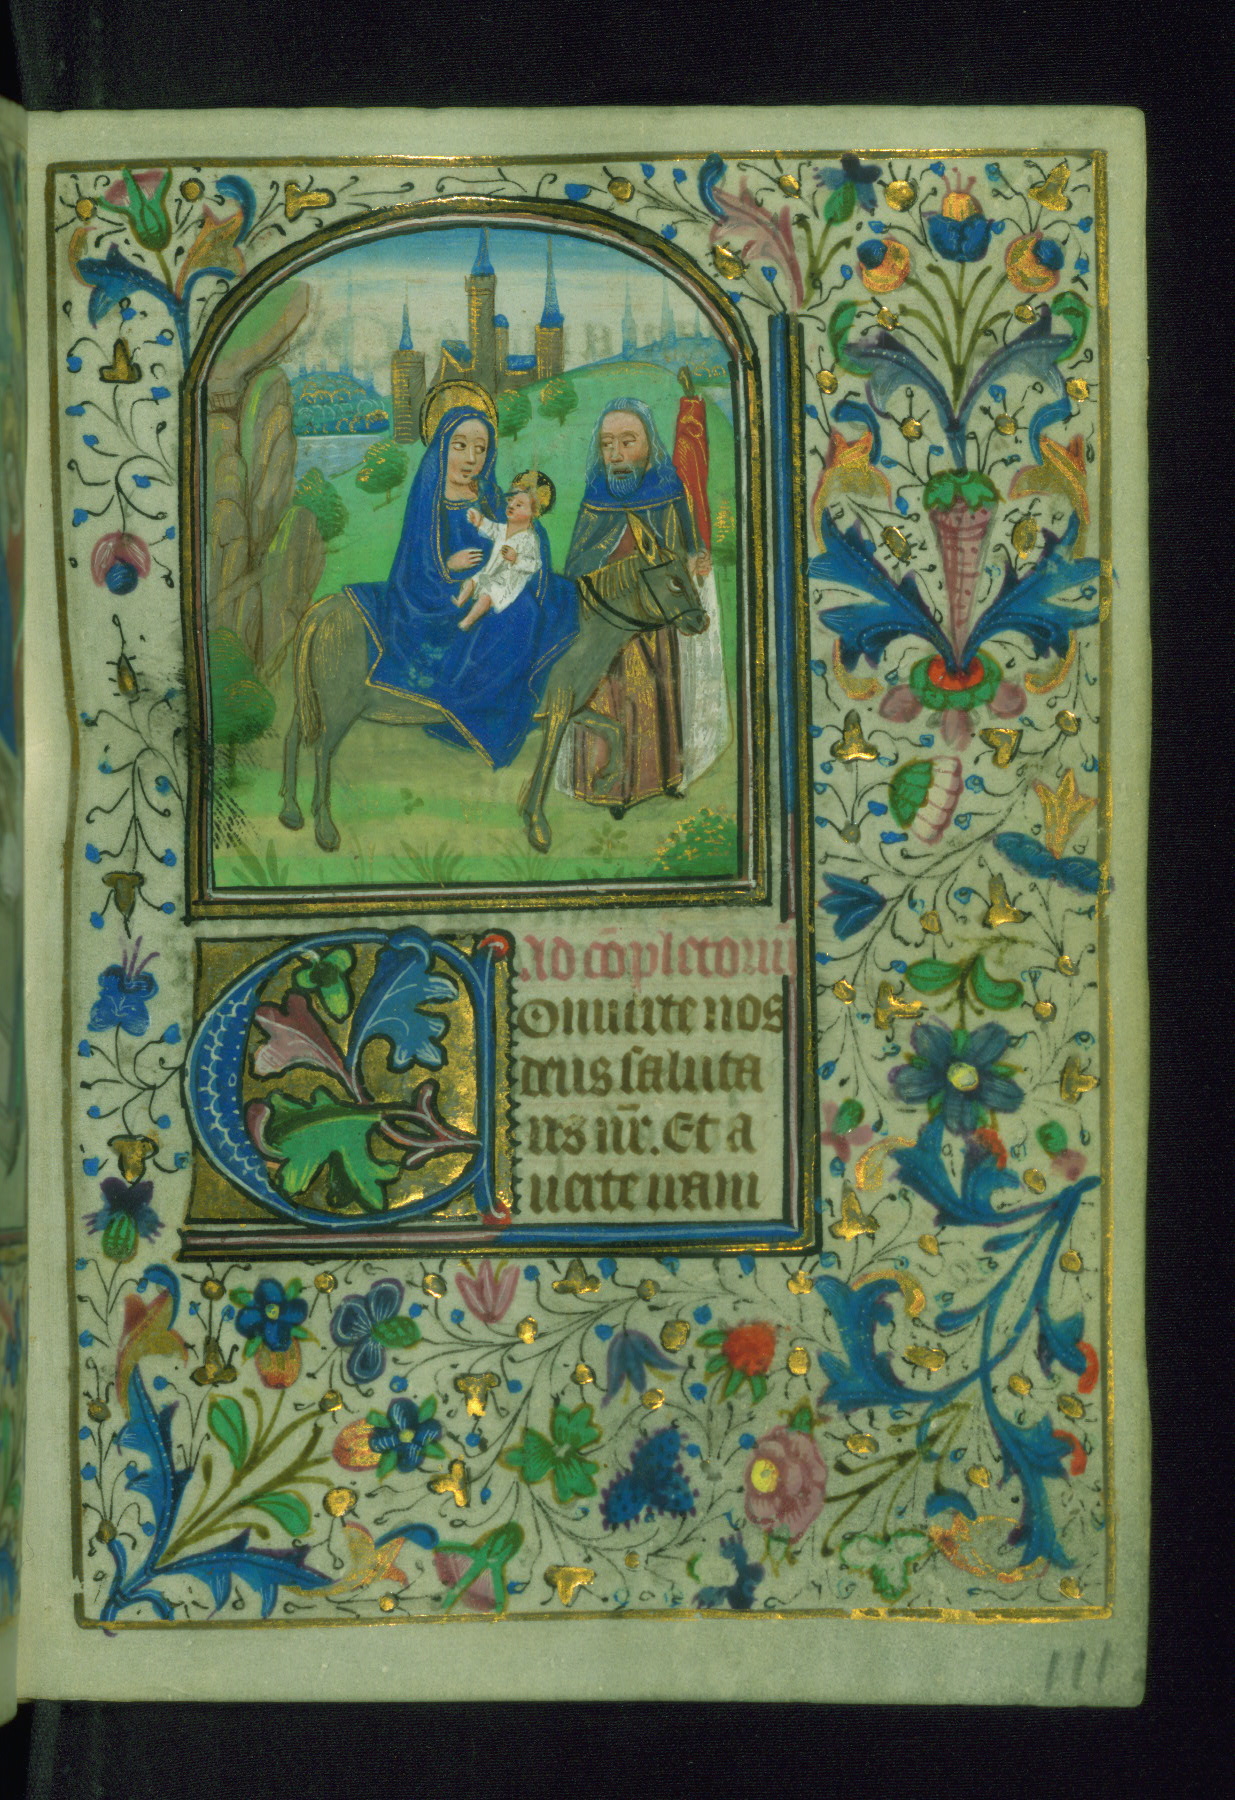 Ad cōpletoriū
Conuirte nos
deus saluta
ris nr̄. Et a
uerte iram
111